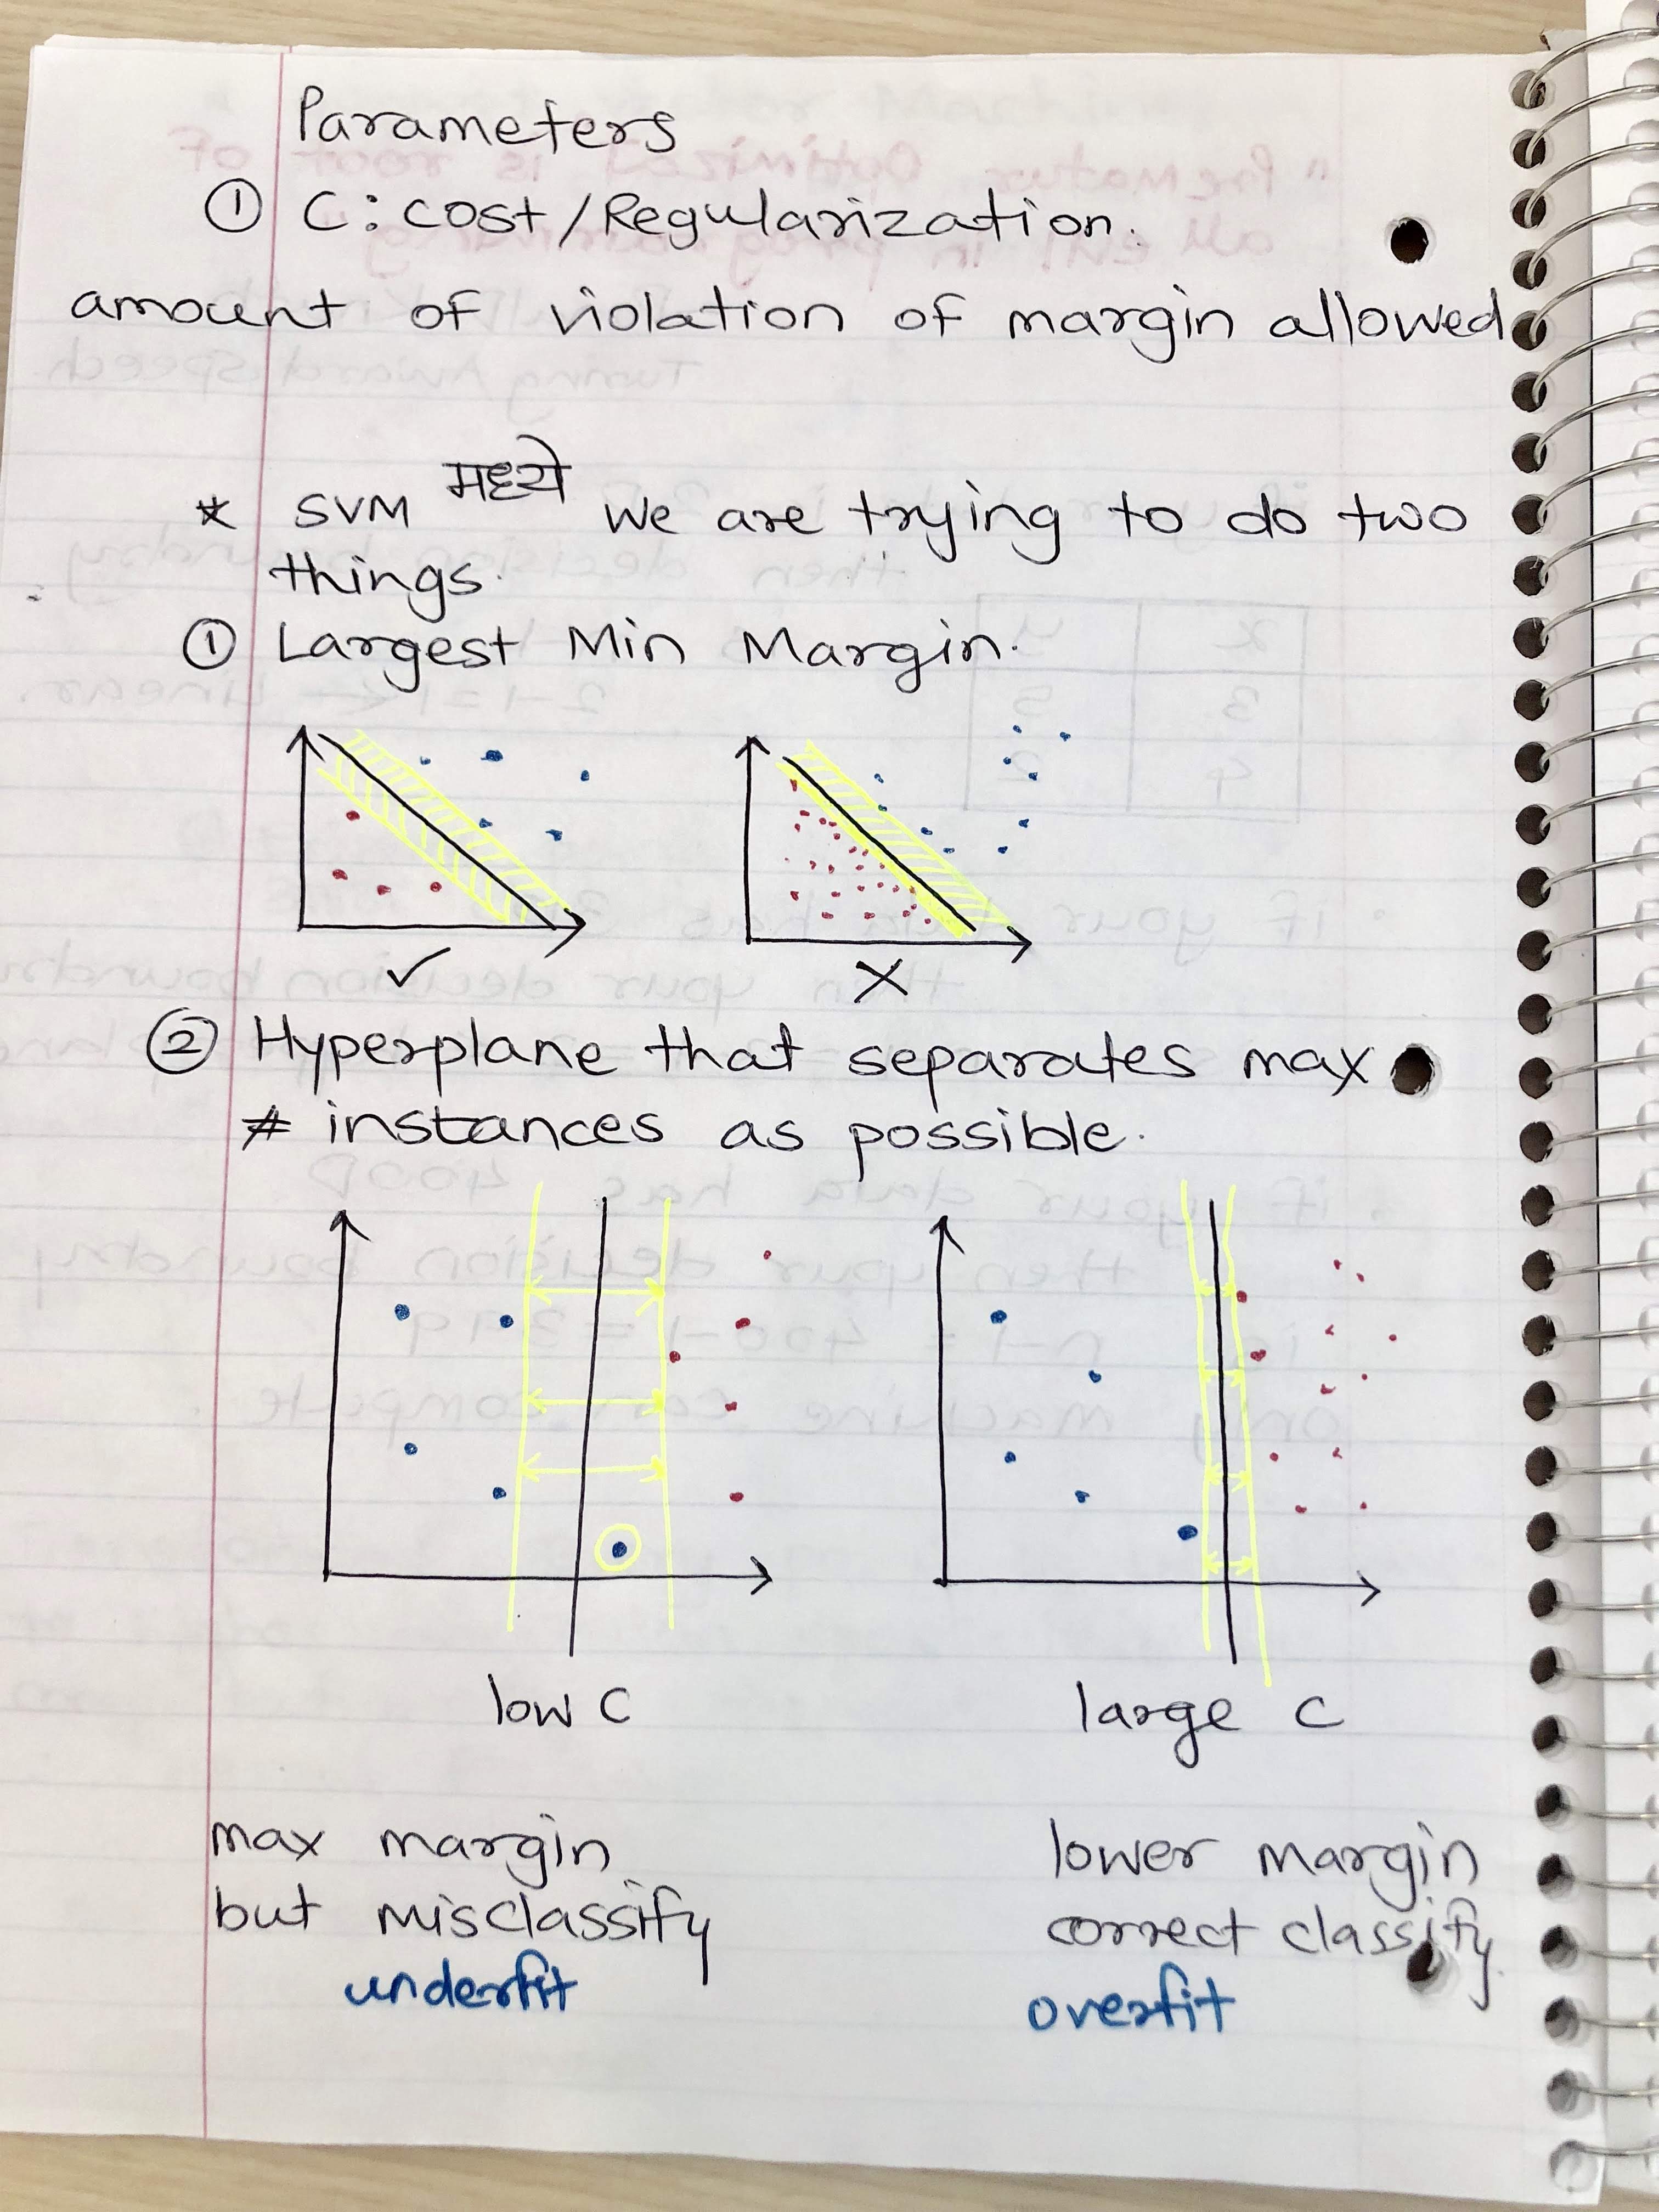 Parameters
① C: cost/Regularization.
amount of violation of margin allowed
* SVM मध्ये we are trying to do two
things.
① Largest Min Margin.
✓ X
② Hyperplane that separates max
# instances as possible.
low C large C
max margin lower margin
but misclassify correct classify
underfit overfit